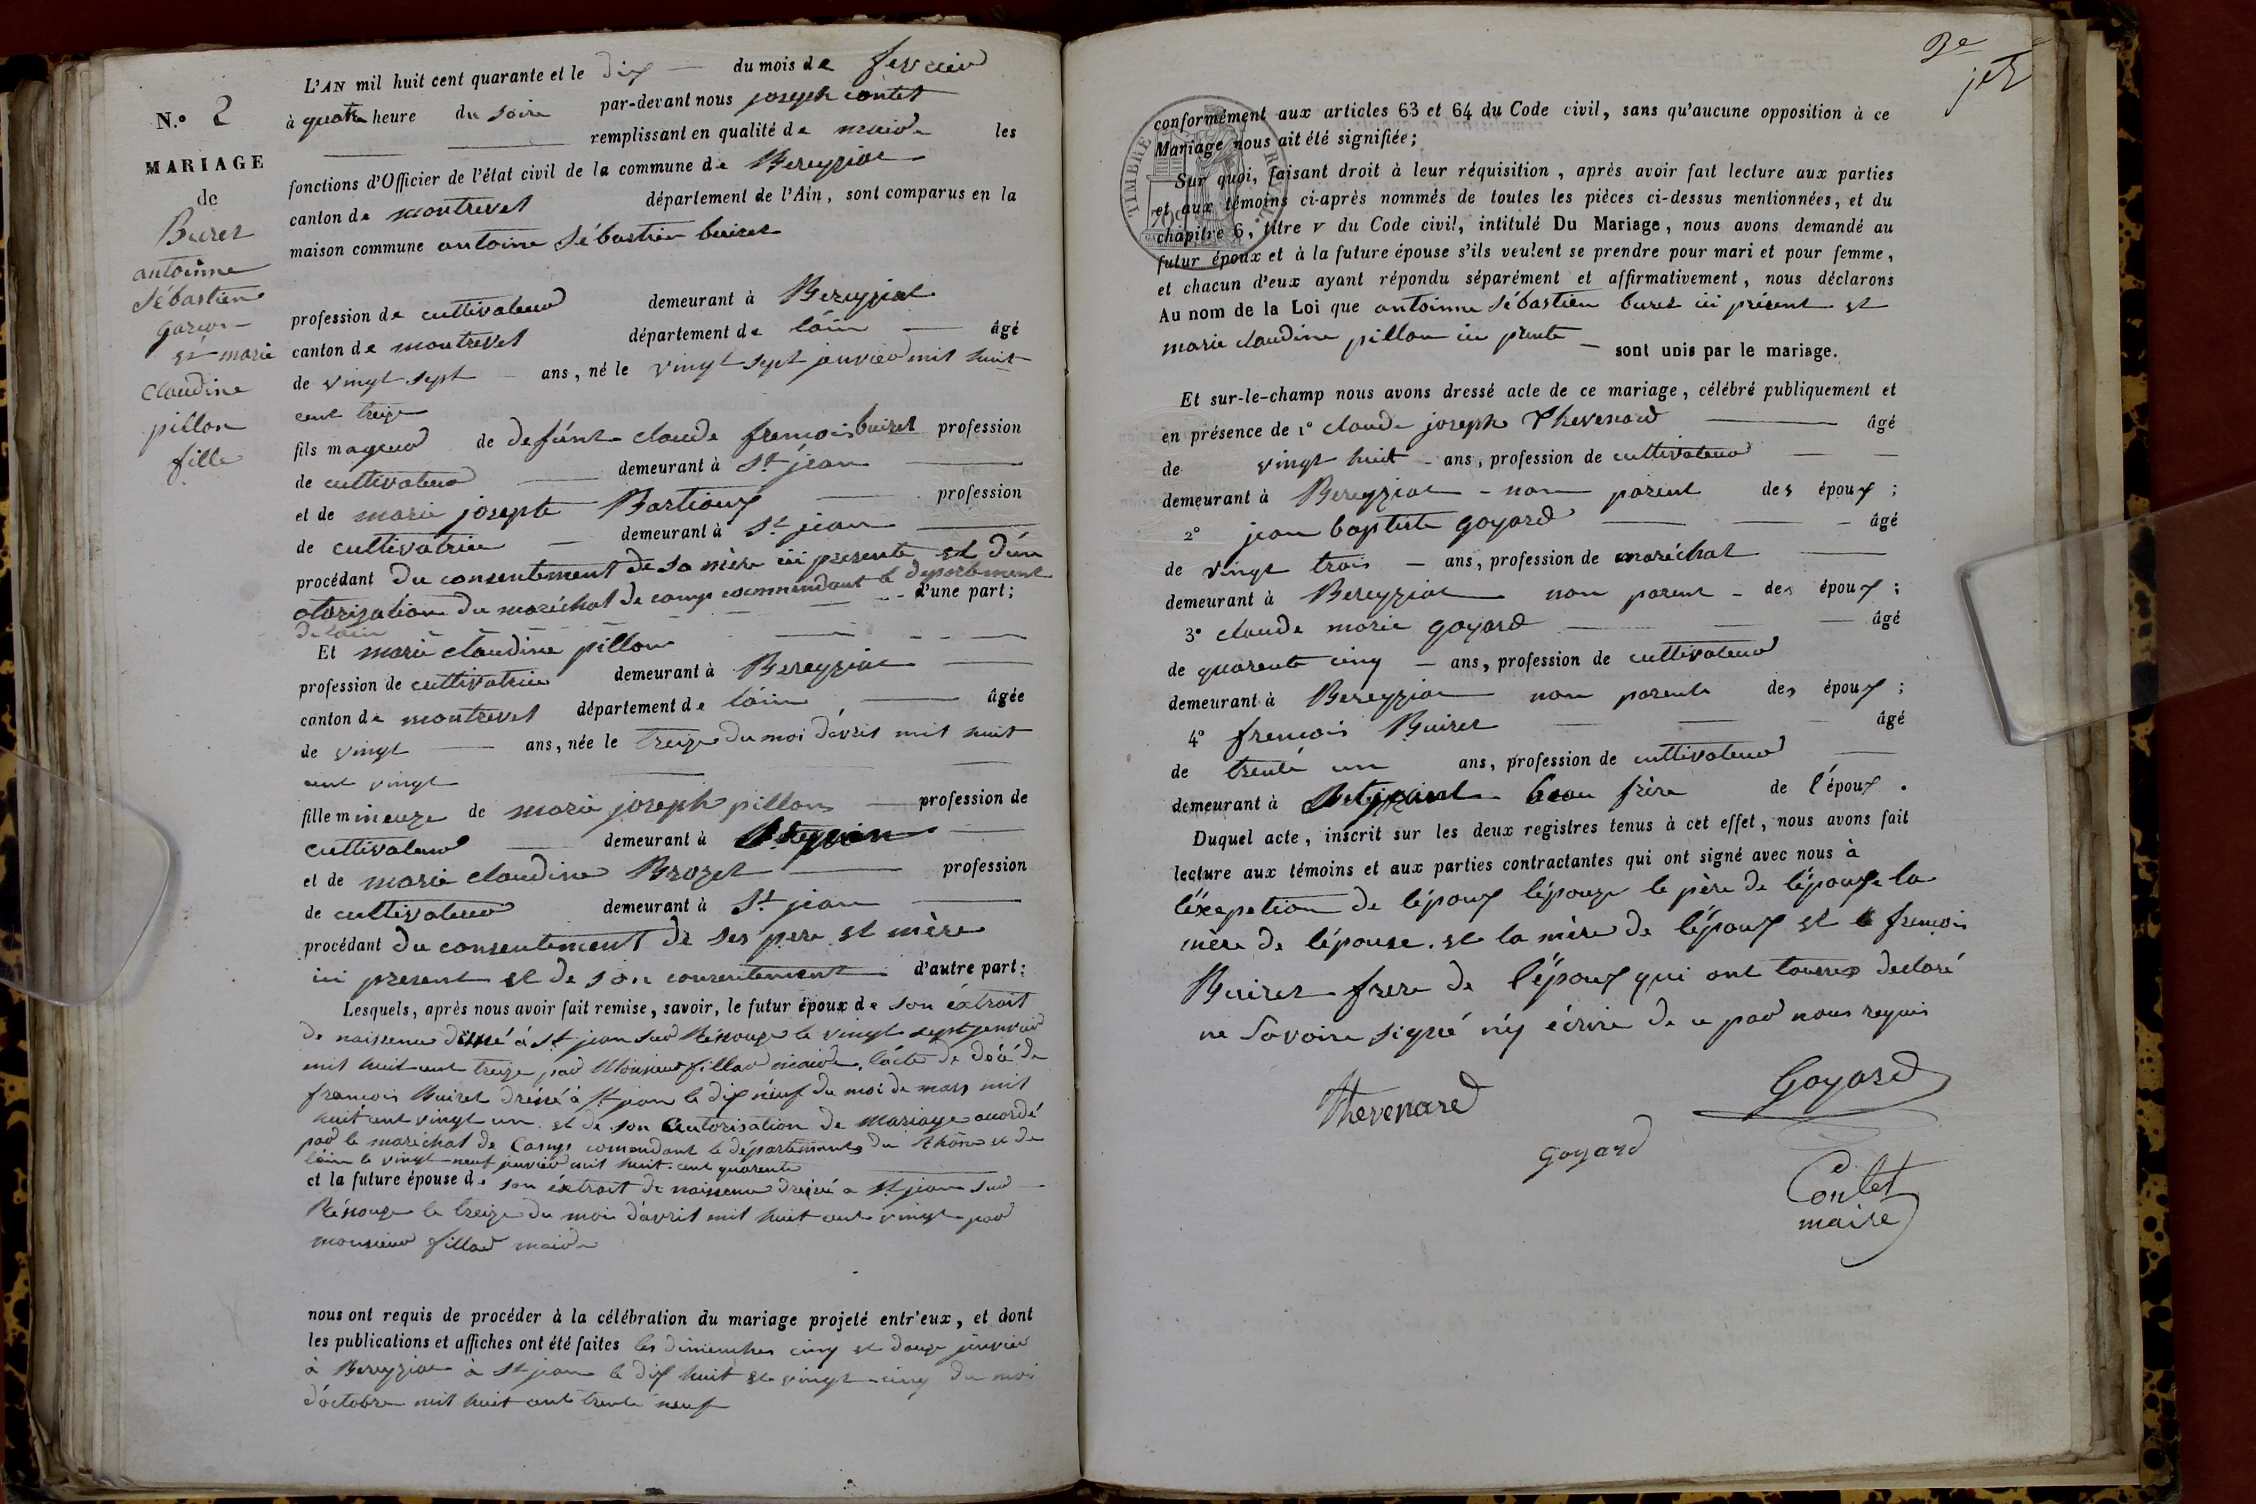 N.° 2
MARIAGE
de
Buiret
antoinne
Sébastien
garçon
et marie
claudine
pillon
fille
L'AN mil huit cent quarante et le dix du mois de fevrier
à quatre heure du soire par-devant nous joseph contet
remplissant en qualité de maire les
fonctions d'Officier de l'état civil de la commune de Bereyziat
canton de montrevel département de l'Ain, sont comparus en la
maison commune antoine Sébastien buiret
profession de cultivateur demeurant à Bereyziat
canton de montrevel département de láin âgé
de vingt sept ans, né le vingt sept janvier mil huit
cent treize
fils mageur de defúnt claude francois buiret profession
de cultivateur demeurant à St jean
et de marie josephte Bastioux profession
de cultivatrice demeurant à St jean
procédant du consentement de sa mère ici presente et d'un
otorization du maréchal de camp commendant le departement d'une part;
de láin
Et marie claudine pillon
profession de cultivatrice demeurant à Bereyziat
canton de montrevel département de láin âgée
de vingt ans, née le treize du moi dávril mil huit
cent vingt
fille mineuze de marie joseph pillon profession de
cultivateur demeurant à
et de marie claudine Brozet profession
de cultivateur demeurant à St jean
procédant du consentement de ses pere et mère
ici present et de son consentement d'autre part;
Lesquels, après nous avoir fait remise, savoir, le futur époux de son éxtrait
de naissence dréssé á St jean sur Résouze le vingt sept janvier
mil huit cent treize par Monsieur fillod maire, lácte de décé de
francois buiret dréssé à St jean le dix néuf du moi de mars mil
huit cent vingt un et de son autorisation de mariage accordé
par le maréchal de Camp comandant le département du Rhône et de
láin le vingt-neuf janvier mil huit-cent quarente
et la future épouse de son éxtrait de naissence dréssé a St jean sur
Résouze le treize du moi dávril mil huit cent vingt par
monsieur fillod maire
nous ont requis de procéder à la célébration du mariage projeté entr'eux, et dont
les publications et affiches ont été faites les dimenches cinq et douze janvier
à Bereyziat à St jean le dix huit et vingt-cinq du moi
d'octobre mil huit cent trente neuf
2e
conformément aux articles 63 et 64 du Code civil, sans qu'aucune opposition à ce
Mariage nous ait été signifiée;
Sur quoi, faisant droit à leur réquisition, après avoir fait lecture aux parties
et aux témoins ci-après nommés de toutes les pièces ci-dessus mentionnées, et du
chapitre 6, titre V du Code civil, intitulé Du Mariage, nous avons demandé au
futur époux et à la future épouse s'ils veulent se prendre pour mari et pour femme,
et chacun d'eux ayant répondu séparément et affirmativement, nous déclarons
Au nom de la Loi que antoinne Sébastien buret ici présent et
marie claudine pillon ici prente sont unis par le mariage.
Et sur-le-champ nous avons dressé acte de ce mariage, célébré publiquement et
en présence de 1° claude joseph Thevenard âgé
de vingt huit ans, profession de cultivateur
demeurant à Bereyziat non parent des époux;
2° jean baptiste goyard âgé
de vingt trois ans, profession de maréchal
demeurant à Bereyziat non parent des époux;
3° claude marie goyard âgé
de quarente cinq ans, profession de cultivateur
demeurant à Bereyziat non parente des époux;
4° francois Buiret âgé
de trente un ans, profession de cultivateur
demeurant à beau frère de l'époux.
Duquel acte, inscrit sur les deux registres tenus à cet effet, nous avons fait
lecture aux témoins et aux parties contractantes qui ont signé avec nous à
léxepetion de lépoux lépouze le père de lépouse la
mère de lépouse. et la mère de lépoux et le francois
Buiret frere de lépoux qui ont tousses declaré
ne Savoire signé n'y écrire de ce par nous requis
Thevenard
Goyard
goyard
Contet
maire
TIMBRE ROYAL